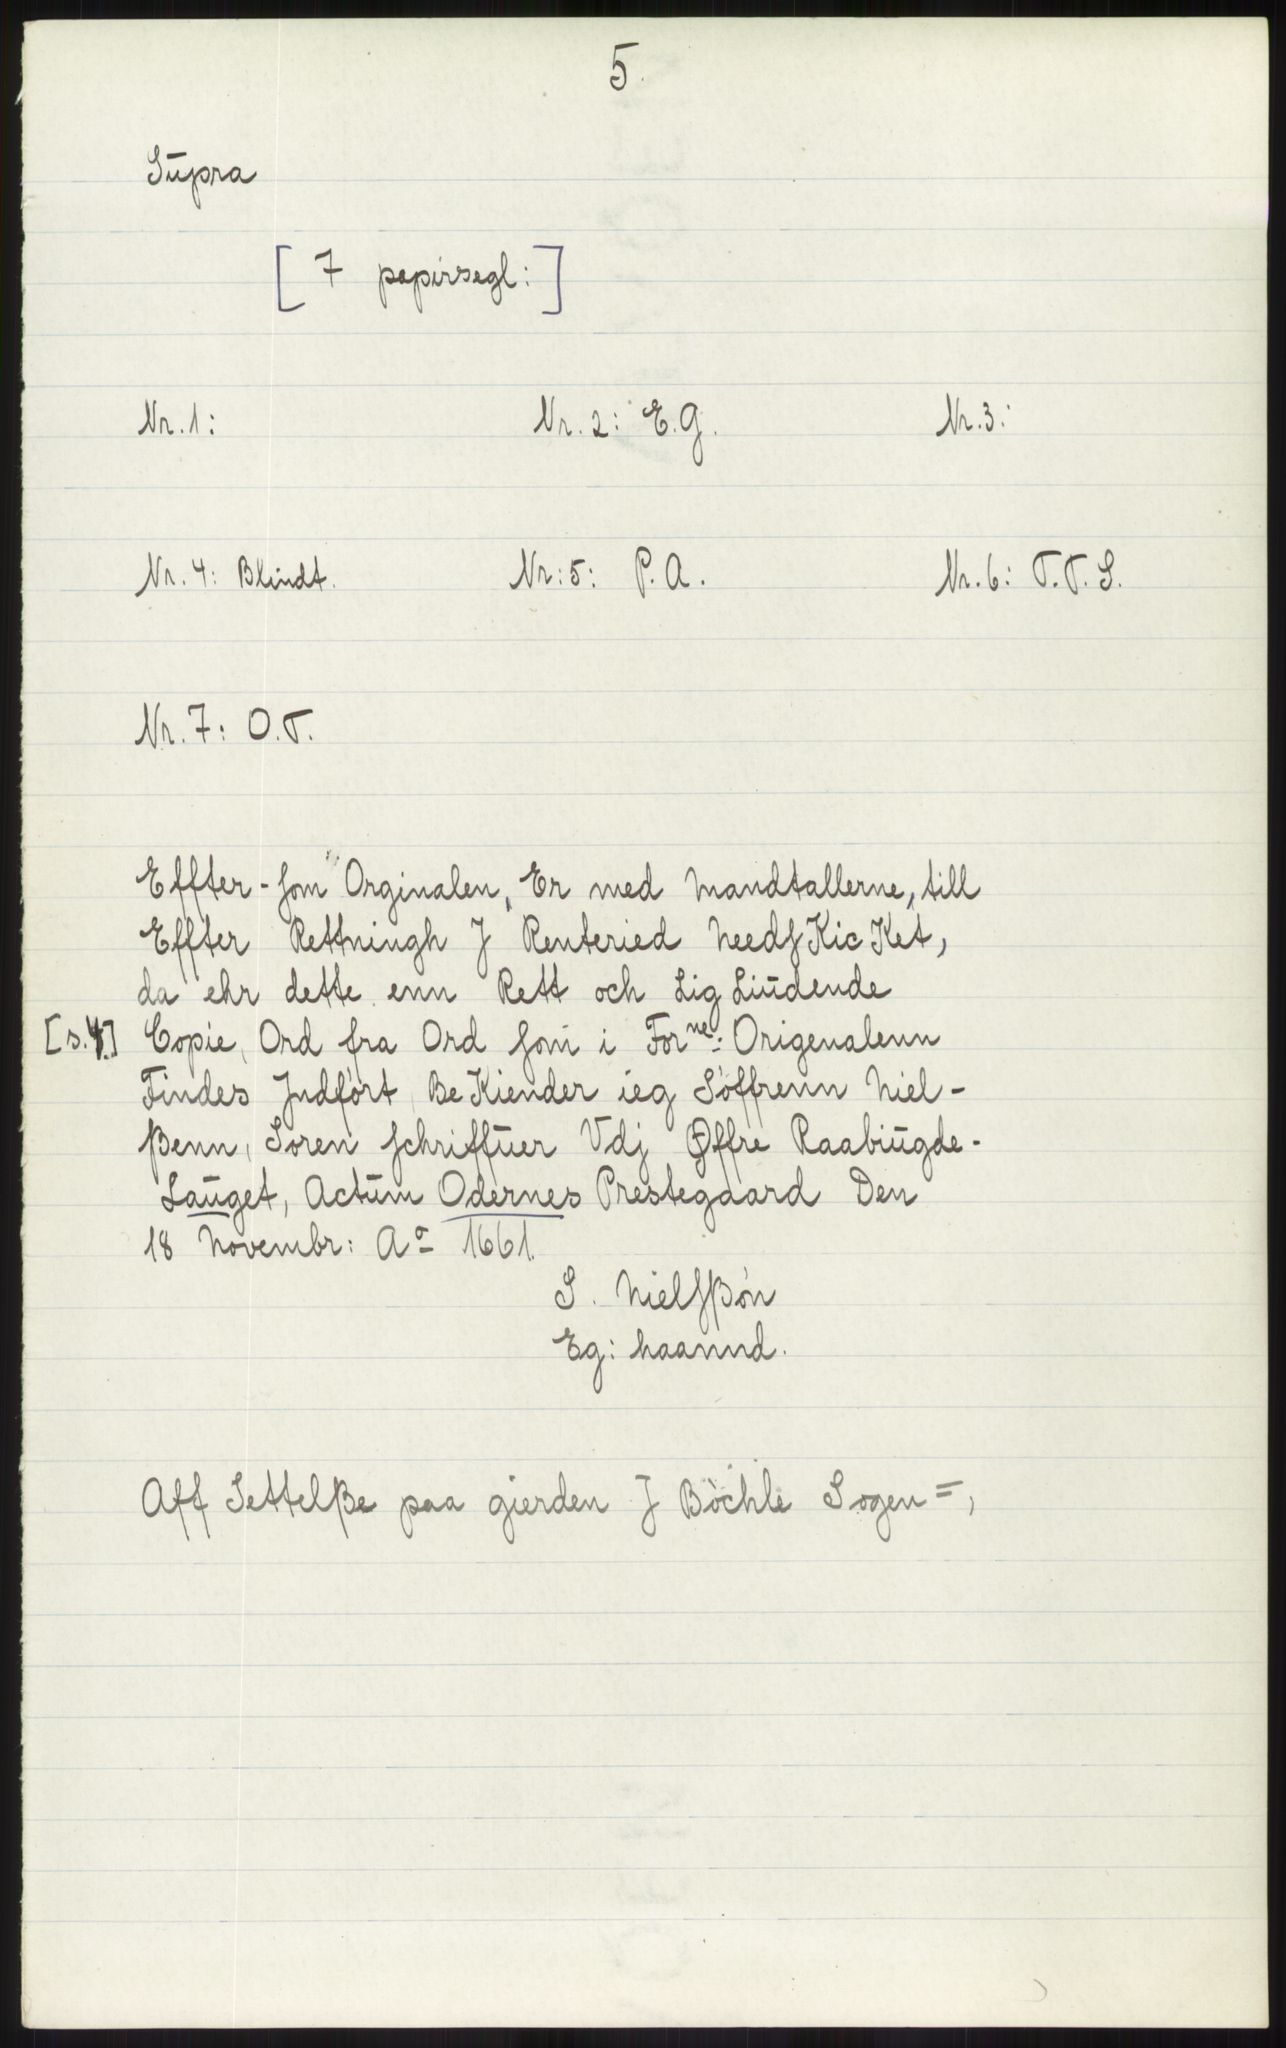 5.
Supra
[7 papirsegl:]
Nr. 1: Nr. 2: E.G. Nr. 3:
Nr. 4: Blindt. Nr: 5: P. A. Nr. 6: T. T. S.
Nr. 7: O. T.
Effter-som Orginalen, Er med Mandtallerne, till
Effter Rettningh J Renteried NeedsKicKet,
da ehr dette enn Rett och LigLiudende
[s. 4.] Copie, Ord fra Ord som i Forne: Origenalenn
Findes Jndført, BeKiender ieg Søffrenn Niel-
ßenn, Soren schriffuer Vdj Øffre Raabiugde-
Lauget, Actum Odernes Prestegaard Den
18 Novembr: Ao 1661.
S. Nielsßøn
Eg: haannd.
Aff Settelße paa gierden J Bøchle Sogen =,